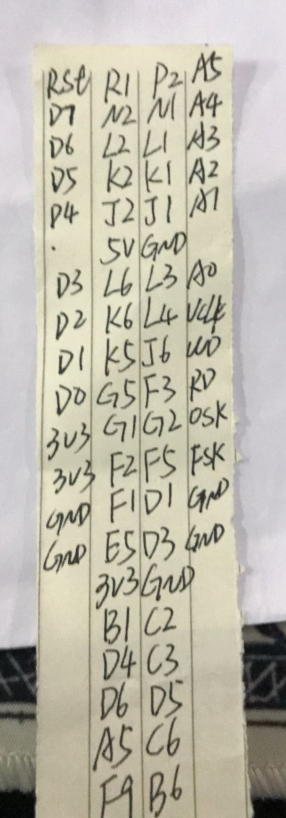 Rst R1 P2 A5
D7 N2 N1 A4
D6 L2 L1 A3
D5 K2 K1 A2
D4 J2 J1 A1
5V GND
D3 L6 L3 A0
D2 K6 L4 UCLK
D1 K5 J6 WD
D0 G5 F3 RD
3V3 G1 G2 OSK
3V3 F2 F5 FSK
GND F1 D1 GND
GND E5 D3 GND
3V3 GND
B1 C2
D4 C3
D6 D5
A5 C6
F9 B6